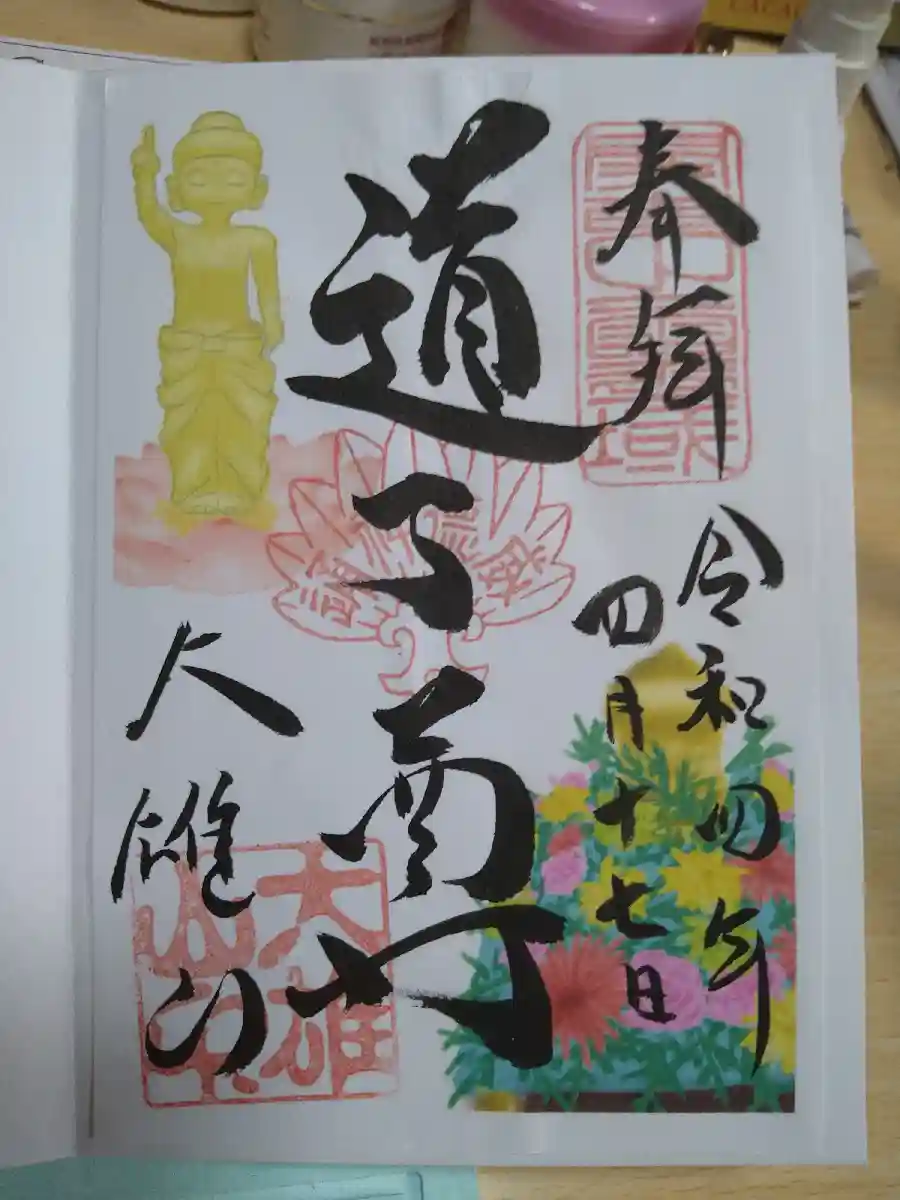 奉拝
令和四年
四月十七日
道了尊
大雄山
大雄山印